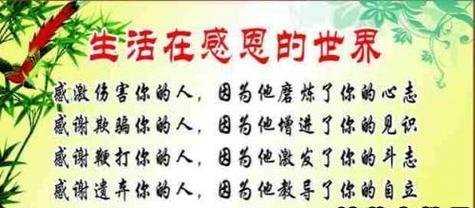 生活在感恩的世界
感激伤害你的人，因为他磨炼了你的心志
感谢欺骗你的人，因为他增进了你的见识
感谢鞭打你的人，因为他激发了你的斗志
感谢遗弃你的人，因为他教导了你的自立